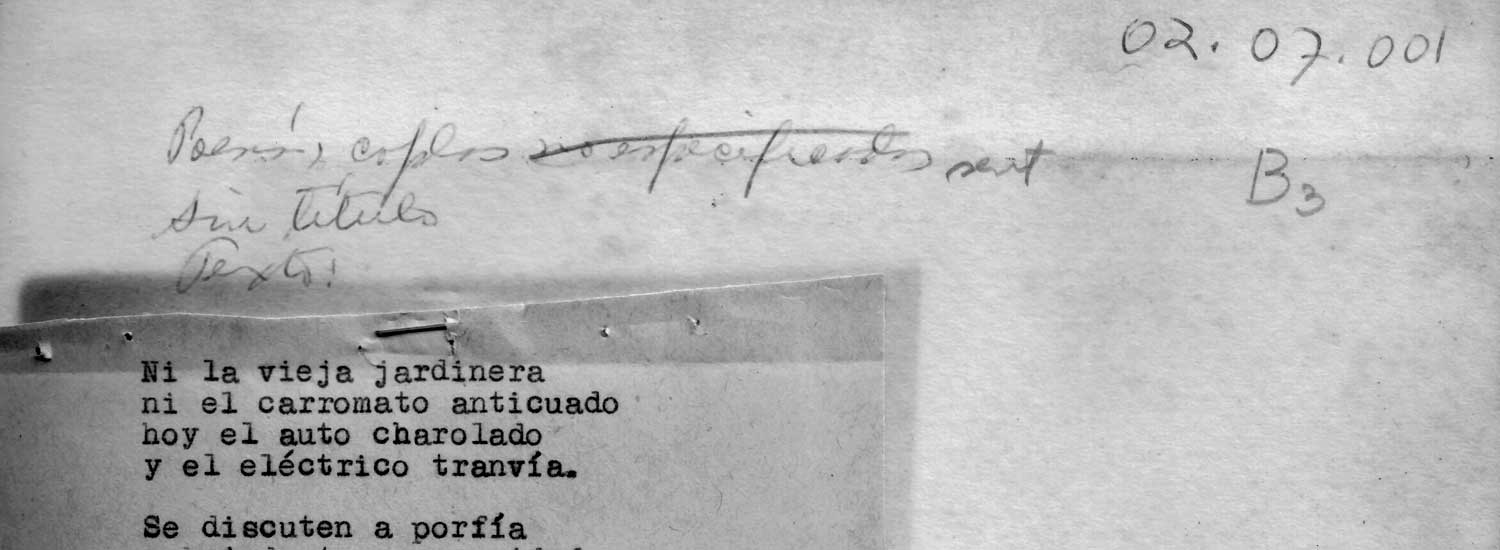 02.07.001
Poesía, coplas no especificadas sent B3
sin título
Texto:
Ni la vieja jardinera
ni el carromato anticuado
hoy el auto charolado
y el eléctrico tranvía.
Se discuten a porfía